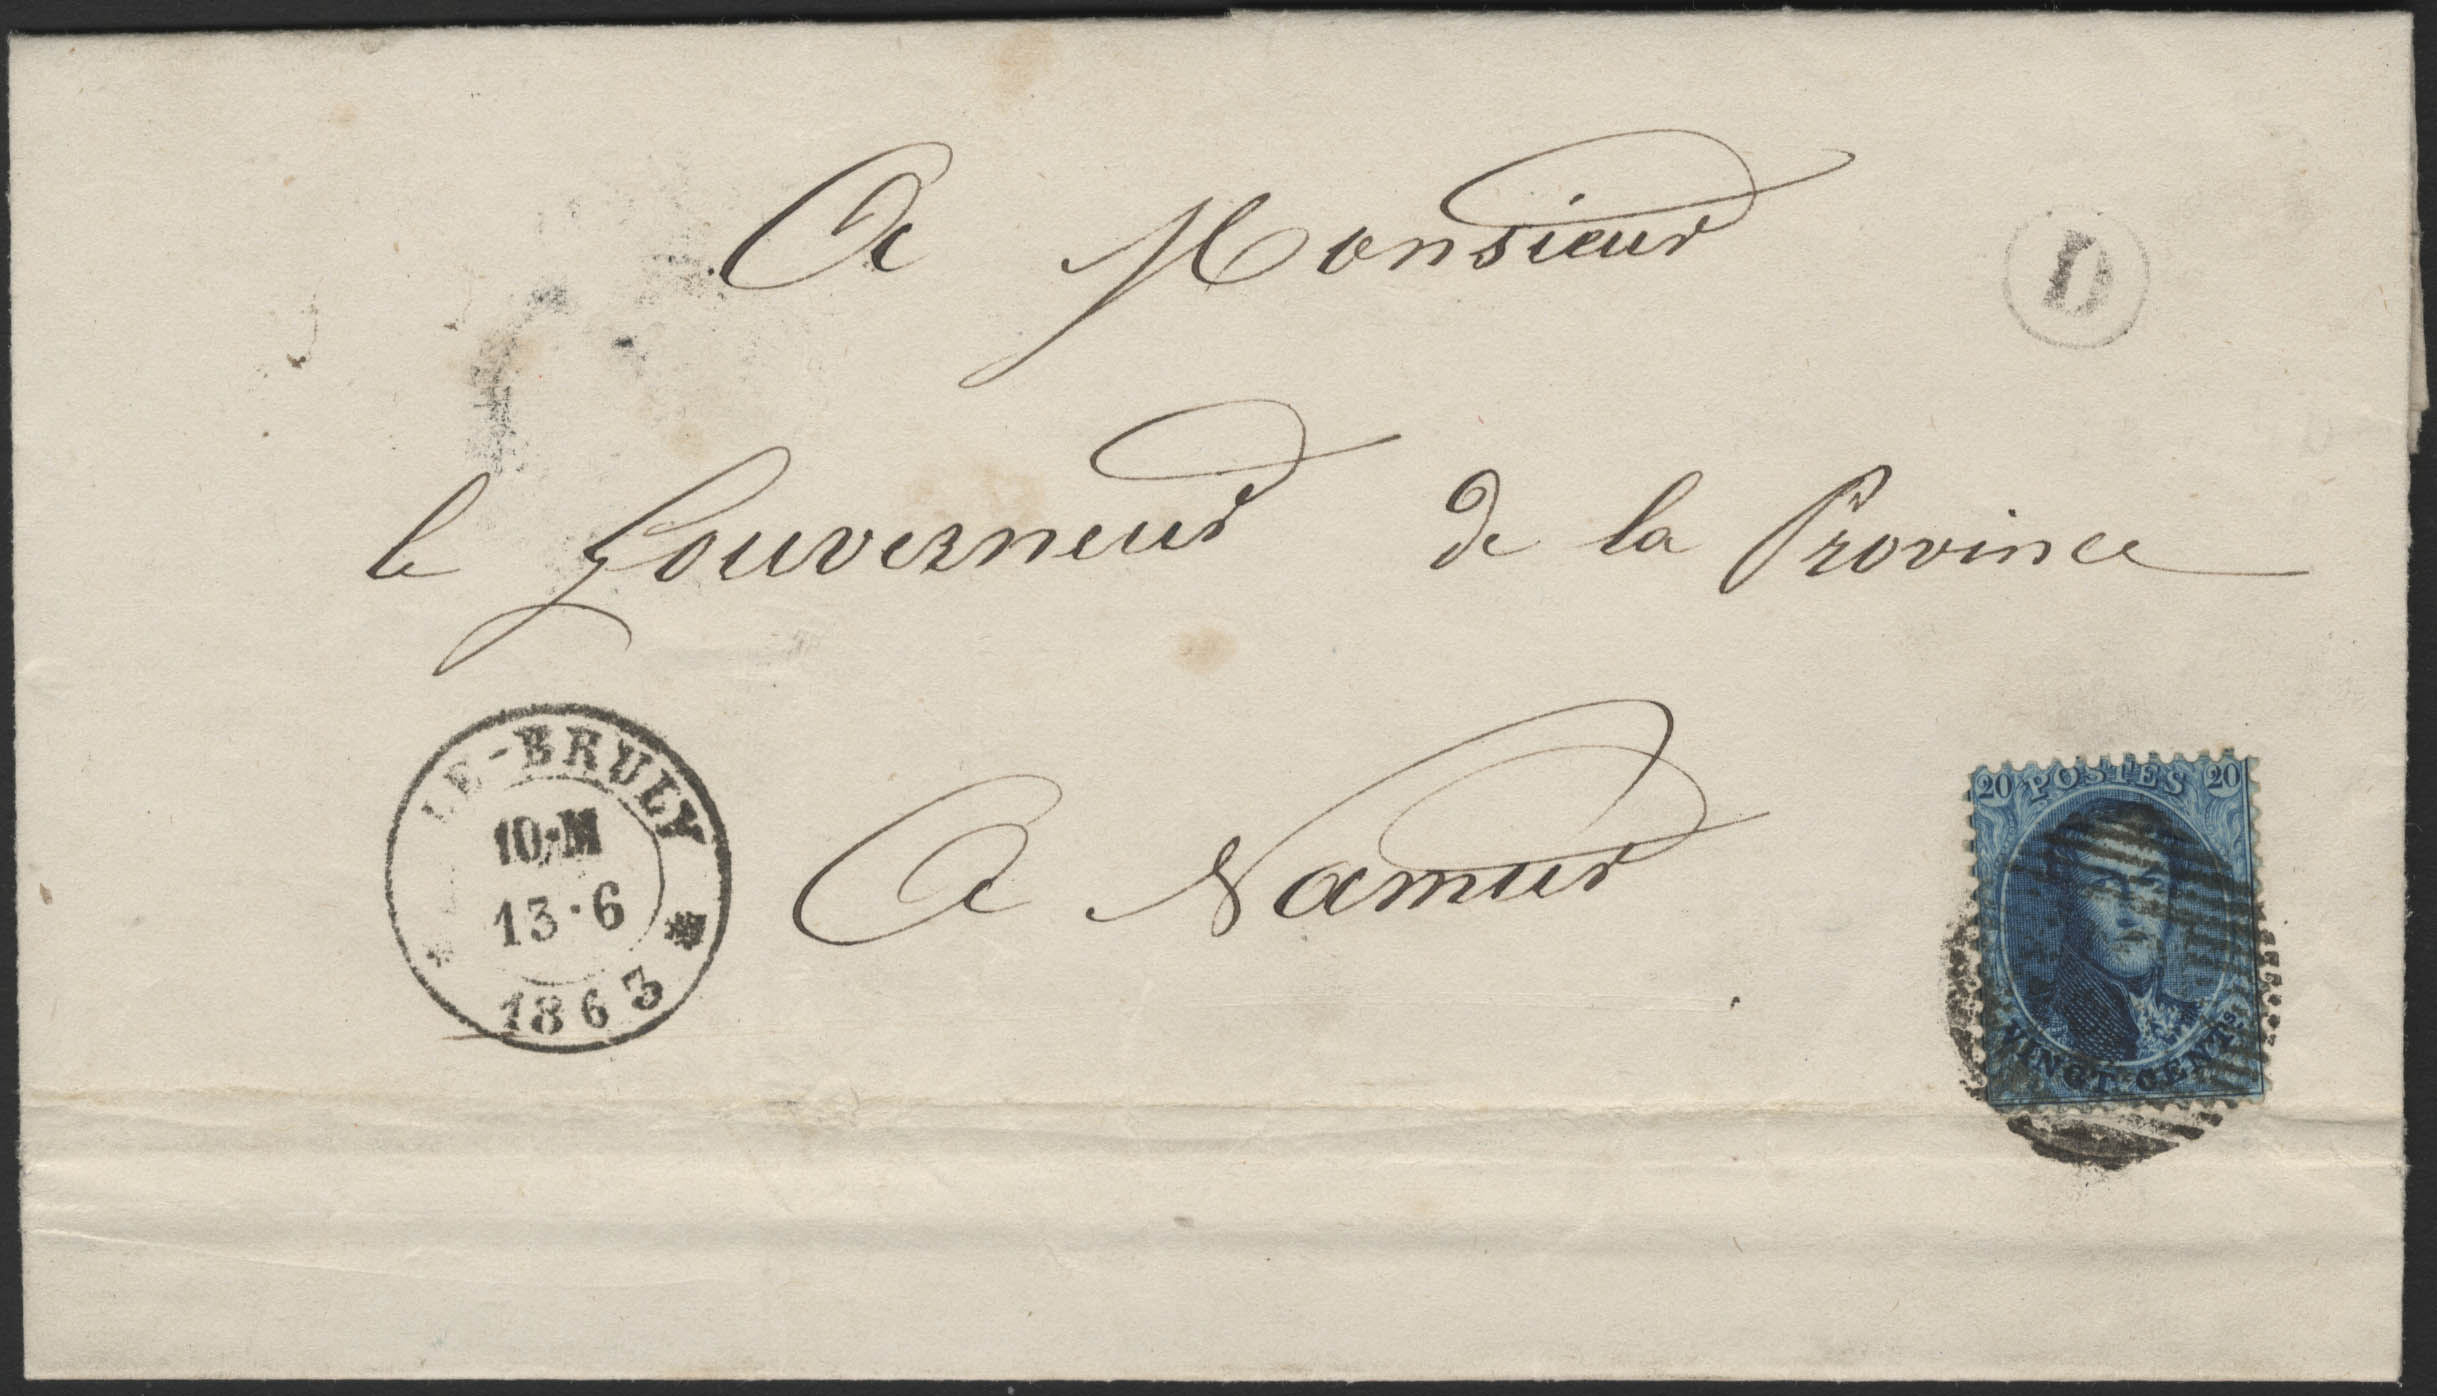 A Monsieur
D
le Gouverneur de la Province
LE-BRULY
10·M
13·6
1863
A Namur
20 POSTES 20
VINGT CENTS